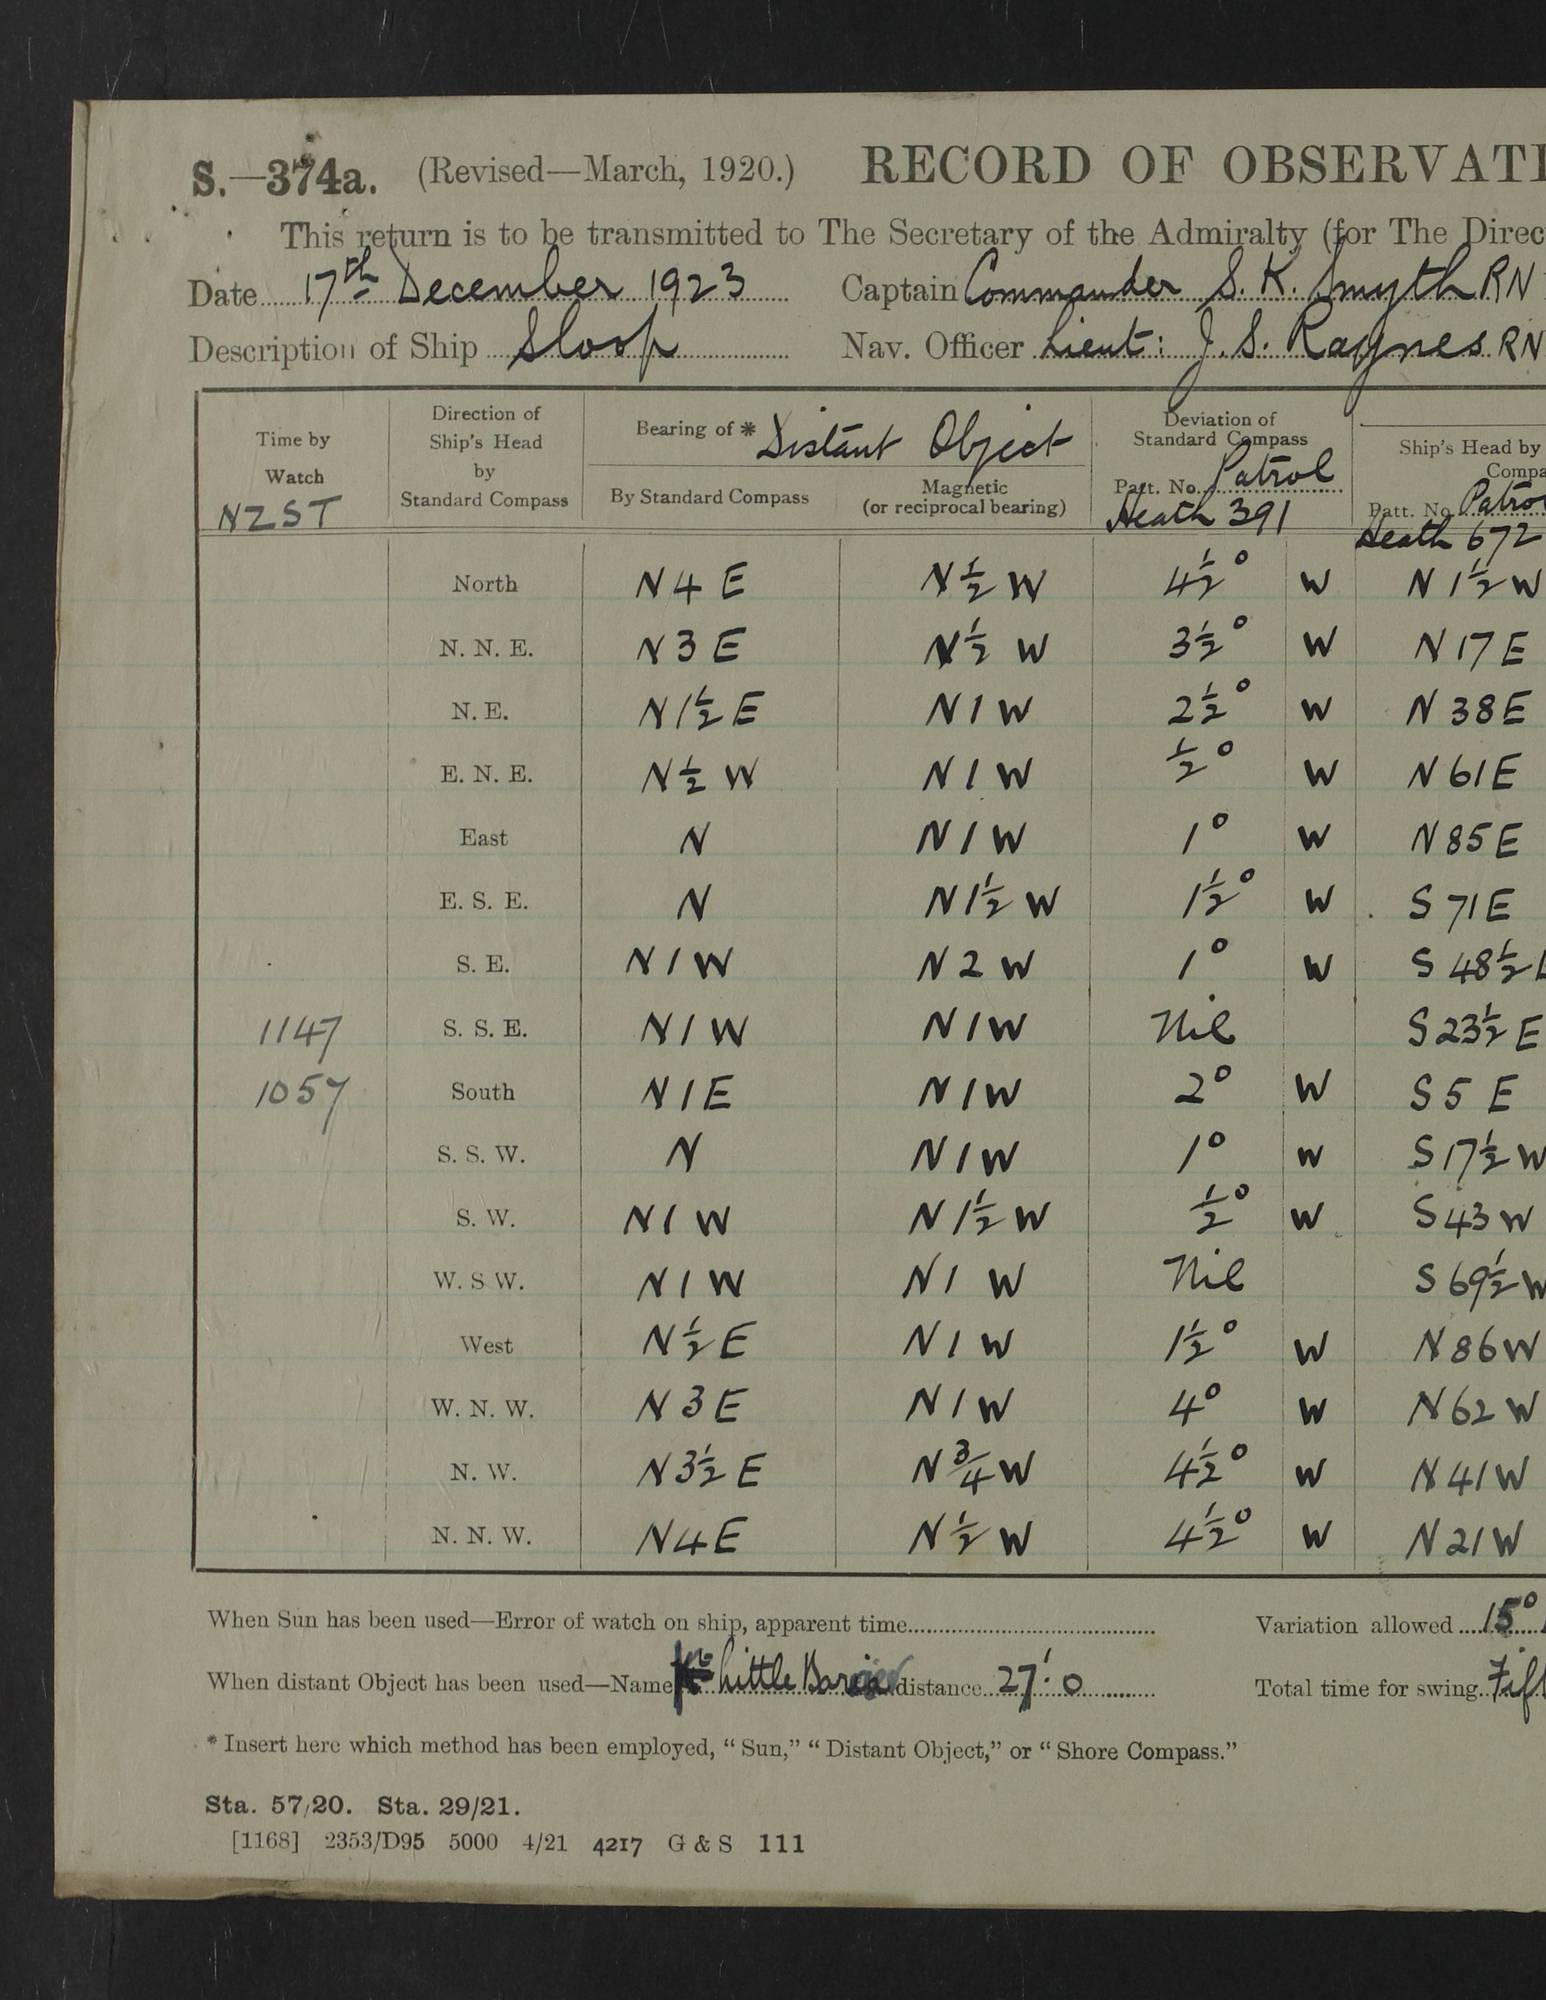 S.—374a. (Revised—March, 1920.) RECORD OF OBSERVATI
This return is to be transmitted to The Secretary of the Admiralty (for The Direc
Date 17th December 1923 Captain Commander S. K. Smyth RN
Description of Ship Sloop Nav. Officer Lieut: J. S. Raynes RN
Time by Watch NZST
Direction of Ship's Head by Standard Compass
Bearing of * Distant Object
By Standard Compass
Magnetic (or reciprocal bearing)
Deviation of Standard Compass
Patt. No. Patrol
Heath 391
Ship's Head by
Compa
Patt. No Patro
Heath 672
North N 4 E N ½ W 4½° W N 1½ W
N. N. E. N 3 E N ½ W 3½° W N 17 E
N. E. N 1½ E N 1 W 2½° W N 38 E
E. N. E. N ½ W N 1 W ½° W N 61 E
East N N 1 W 1° W N 85 E
E. S. E. N N 1½ W 1½° W S 71 E
S. E. N 1 W N 2 W 1° W S 48½
1147 S. S. E. N 1 W N 1 W Nil S 23½ E
1057 South N 1 E N 1 W 2° W S 5 E
S. S. W. N N 1 W 1° W S 17½ W
S. W. N 1 W N 1½ W ½° W S 43 W
W. S W. N 1 W N 1 W Nil S 69½ W
West N ½ E N 1 W 1½° W N 86 W
W. N. W. N 3 E N 1 W 4° W N 62 W
N. W. N 3½ E N ¾ W 4½° W N 41 W
N. N. W. N 4 E N ½ W 4½° W N 21 W
When Sun has been used—Error of watch on ship, apparent time Variation allowed 15°
When distant Object has been used—Name Little distance 27'.0 Total time for swing Fift
* Insert here which method has been employed, “ Sun,” “ Distant Object,” or “ Shore Compass.”
Sta. 57/20. Sta. 29/21.
[1168] 2353/D95 5000 4/21 4217 G & S 111